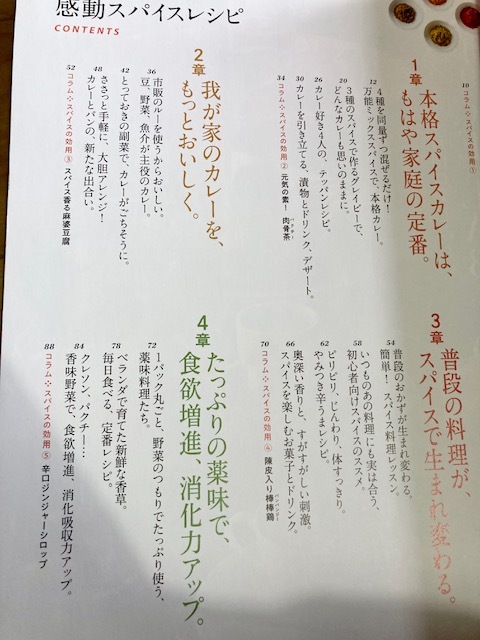 感動スパイスレシピ
CONTENTS
10
コラム❖スパイスの効用①
1章
本格スパイスカレーは、
もはや家庭の定番。
12
4種を同量ずつ混ぜるだけ！
万能ミックススパイスで、本格カレー。
20
3種のスパイスで作るグレイビーで、
どんなカレーも思いのままに。
26
カレー好き4人の、テッパンレシピ。
30
カレーを引き立てる、漬物とドリンク、デザート。
34
コラム❖スパイスの効用②
元気の素！ 肉骨茶
2章
我が家のカレーを、
もっとおいしく。
36
市販のルーを使うからおいしい。
豆、野菜、魚介が主役のカレー。
42
とっておきの副菜で、カレーがごちそうに。
48
ささっと手軽に、大胆アレンジ！
カレーとパンの、新たな出合い。
52
コラム❖スパイスの効用③
スパイス香る麻婆豆腐
3章
普段の料理が、
スパイスで生まれ変わる。
54
普段のおかずが生まれ変わる、
簡単！ スパイス料理レッスン。
58
いつものあの料理にも実は合う、
初心者向けスパイスのススメ。
62
ピリピリ、じんわり、体すっきり。
やみつき辛うまレシピ。
66
奥深い香りと、すがすがしい刺激。
スパイスを楽しむお菓子とドリンク。
70
コラム❖スパイスの効用④
陳皮入り棒棒鶏
4章
たっぷりの薬味で、
食欲増進、消化力アップ。
72
1パック丸ごと、野菜のつもりでたっぷり使う、
薬味料理たち。
78
ベランダで育てた新鮮な香草。
毎日食べる、定番レシピ。
84
クレソン、パクチー…
香味野菜で、食欲増進、消化吸収力アップ。
88
コラム❖スパイスの効用⑤
辛口ジンジャーシロップ